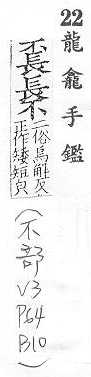 22 龍龕手鑑
不長長不
二俗烏觧反
正作矮短皃
(不部
V3
P64
B10)